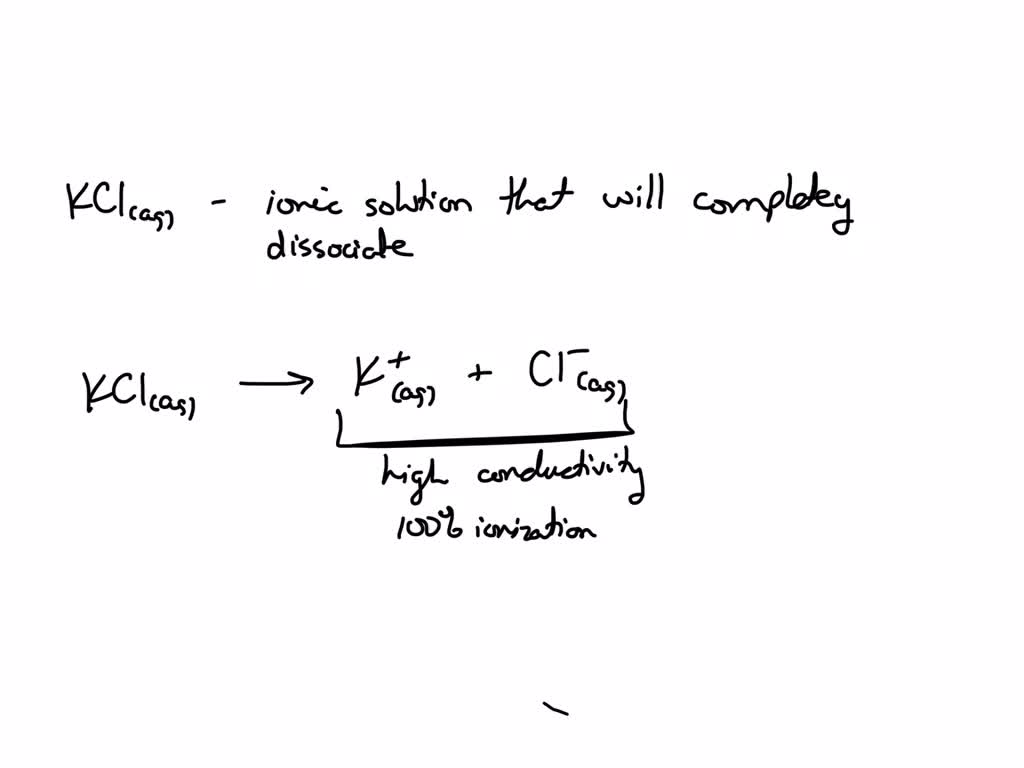 KCl(aq) - ionic solution that will completey
dissociate
KCl(aq) → K⁺(aq) + Cl⁻(aq)
high conductivity
100% ionization